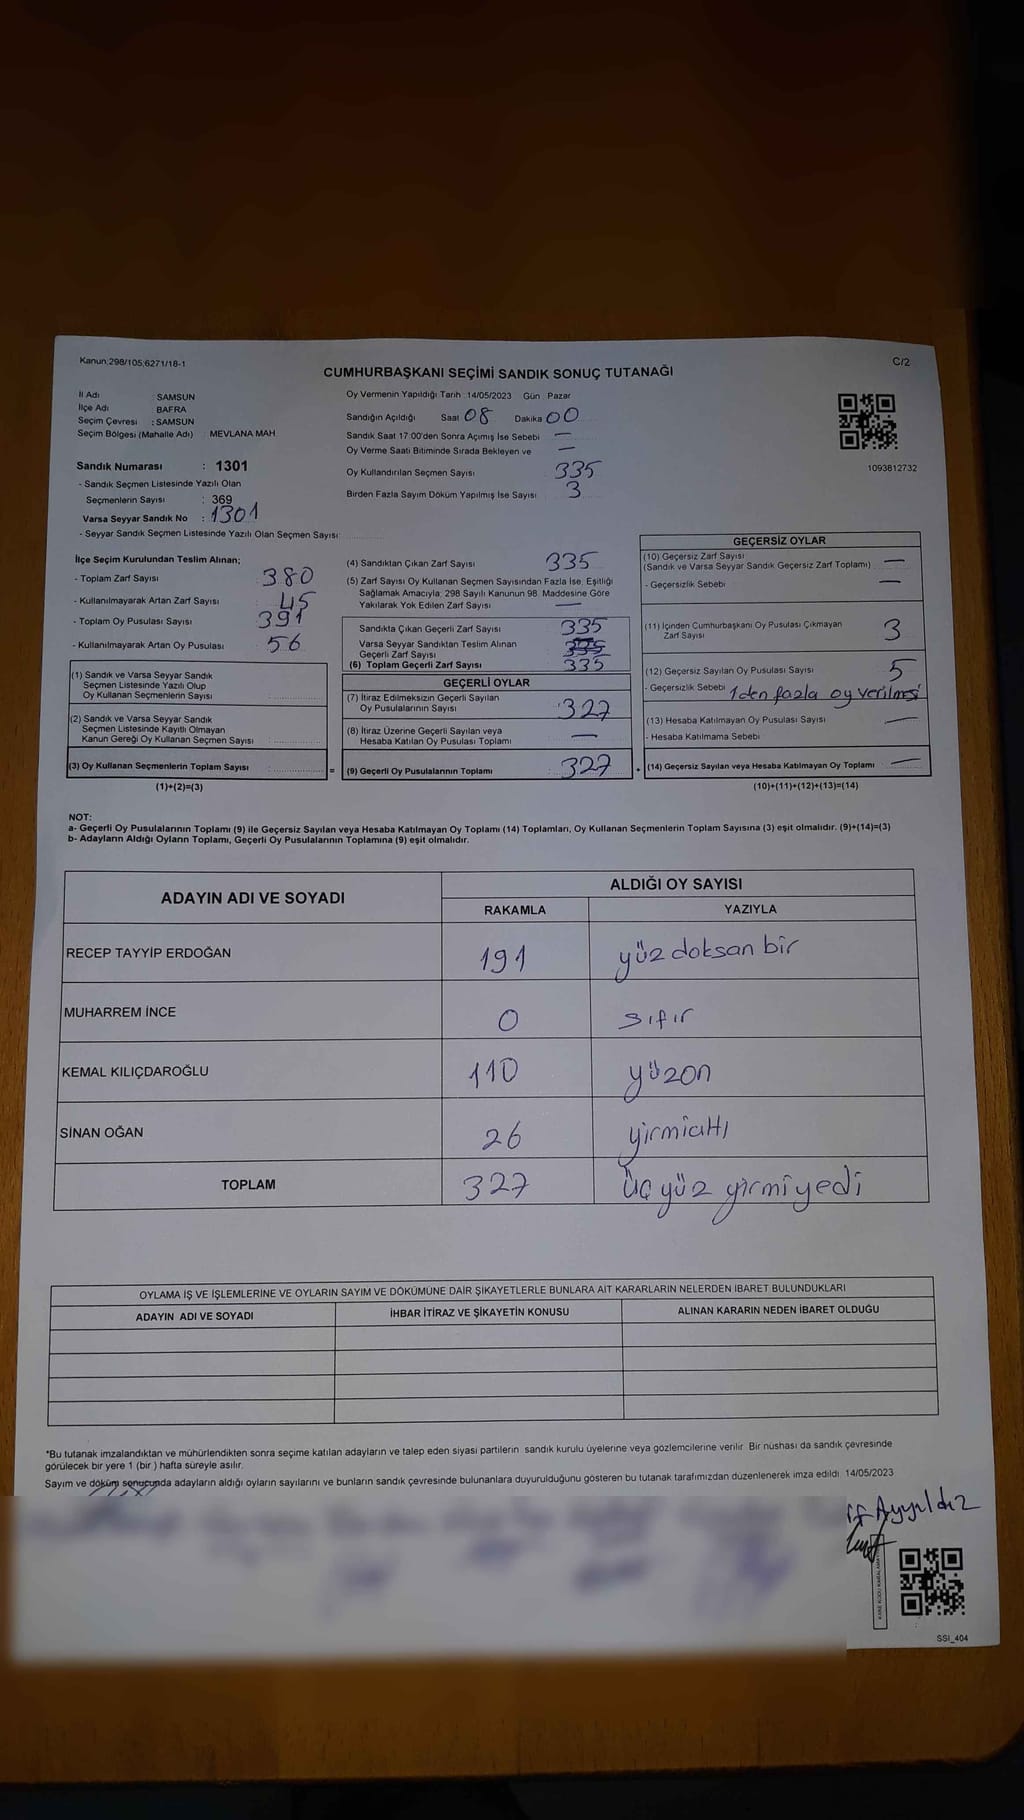 Kanun:298/105;6271/18-1
C/2
CUMHURBAŞKANI SEÇİMİ SANDIK SONUÇ TUTANAĞI
İl Adı SAMSUN
İlçe Adı BAFRA
Seçim Çevresi : SAMSUN
Seçim Bölgesi (Mahalle Adı) : MEVLANA MAH.
Sandık Numarası : 1301
- Sandık Seçmen Listesinde Yazılı Olan
Seçmenlerin Sayısı : 369
Varsa Seyyar Sandık No : 1301
- Seyyar Sandık Seçmen Listesinde Yazılı Olan Seçmen Sayısı:
Oy Vermenin Yapıldığı Tarih :14/05/2023 Gün : Pazar
Sandığın Açıldığı Saat 08 Dakika 00
Sandık Saat 17:00'den Sonra Açımış İse Sebebi —
Oy Verme Saati Bitiminde Sırada Bekleyen ve —
Oy Kullandırılan Seçmen Sayısı 335
Birden Fazla Sayım Döküm Yapılmış İse Sayısı 3
1093812732
İlçe Seçim Kurulundan Teslim Alınan;
- Toplam Zarf Sayısı 380
- Kullanılmayarak Artan Zarf Sayısı 45
- Toplam Oy Pusulası Sayısı 391
- Kullanılmayarak Artan Oy Pusulası 56
(1) Sandık ve Varsa Seyyar Sandık
Seçmen Listesinde Yazılı Olup
Oy Kullanan Seçmenlerin Sayısı
(2) Sandık ve Varsa Seyyar Sandık
Seçmen Listesinde Kayıtlı Olmayan
Kanun Gereği Oy Kullanan Seçmen Sayısı
(3) Oy Kullanan Seçmenlerin Toplam Sayısı : =
(1)+(2)=(3)
(4) Sandıktan Çıkan Zarf Sayısı 335
(5) Zarf Sayısı Oy Kullanan Seçmen Sayısından Fazla İse, Eşitliği
Sağlamak Amacıyla, 298 Sayılı Kanunun 98. Maddesine Göre
Yakılarak Yok Edilen Zarf Sayısı —
Sandıkta Çıkan Geçerli Zarf Sayısı 335
Varsa Seyyar Sandıktan Teslim Alınan
Geçerli Zarf Sayısı
(6) Toplam Geçerli Zarf Sayısı 335
GEÇERLİ OYLAR
(7) İtiraz Edilmeksizin Geçerli Sayılan
Oy Pusulalarının Sayısı 327
(8) İtiraz Üzerine Geçerli Sayılan veya
Hesaba Katılan Oy Pusulası Toplamı —
(9) Geçerli Oy Pusulalarının Toplamı 327 +
GEÇERSİZ OYLAR
(10) Geçersiz Zarf Sayısı
(Sandık ve Varsa Seyyar Sandık Geçersiz Zarf Toplamı) —
- Geçersizlik Sebebi —
(11) İçinden Cumhurbaşkanı Oy Pusulası Çıkmayan
Zarf Sayısı 3
(12) Geçersiz Sayılan Oy Pusulası Sayısı 5
- Geçersizlik Sebebi 1den fazla oy verilmesi
(13) Hesaba Katılmayan Oy Pusulası Sayısı —
- Hesaba Katılmama Sebebi
(14) Geçersiz Sayılan veya Hesaba Katılmayan Oy Toplamı —
(10)+(11)+(12)+(13)=(14)
NOT:
a- Geçerli Oy Pusulalarının Toplamı (9) ile Geçersiz Sayılan veya Hesaba Katılmayan Oy Toplamı (14) Toplamları, Oy Kullanan Seçmenlerin Toplam Sayısına (3) eşit olmalıdır. (9)+(14)=(3)
b- Adayların Aldığı Oyların Toplamı, Geçerli Oy Pusulalarının Toplamına (9) eşit olmalıdır.
ADAYIN ADI VE SOYADI ALDIĞI OY SAYISI
RAKAMLA YAZIYLA
RECEP TAYYİP ERDOĞAN 191 yüz doksan bir
MUHARREM İNCE 0 sıfır
KEMAL KILIÇDAROĞLU 110 yüzon
SİNAN OĞAN 26 yirmialtı
TOPLAM 327 üç yüz yirmi yedi
OYLAMA İŞ VE İŞLEMLERİNE VE OYLARIN SAYIM VE DÖKÜMÜNE DAİR ŞİKAYETLERLE BUNLARA AİT KARARLARIN NELERDEN İBARET BULUNDUKLARI
ADAYIN ADI VE SOYADI İHBAR İTİRAZ VE ŞİKAYETİN KONUSU ALINAN KARARIN NEDEN İBARET OLDUĞU
*Bu tutanak imzalandıktan ve mühürlendikten sonra seçime katılan adayların ve talep eden siyasi partilerin sandık kurulu üyelerine veya gözlemcilerine verilir. Bir nüshası da sandık çevresinde
görülecek bir yere 1 (bir ) hafta süreyle asılır.
Sayım ve döküm sonucunda adayların aldığı oyların sayılarını ve bunların sandık çevresinde bulunanlara duyurulduğunu gösteren bu tutanak tarafımızdan düzenlenerek imza edildi. 14/05/2023
Ayyıldız
SSI_404